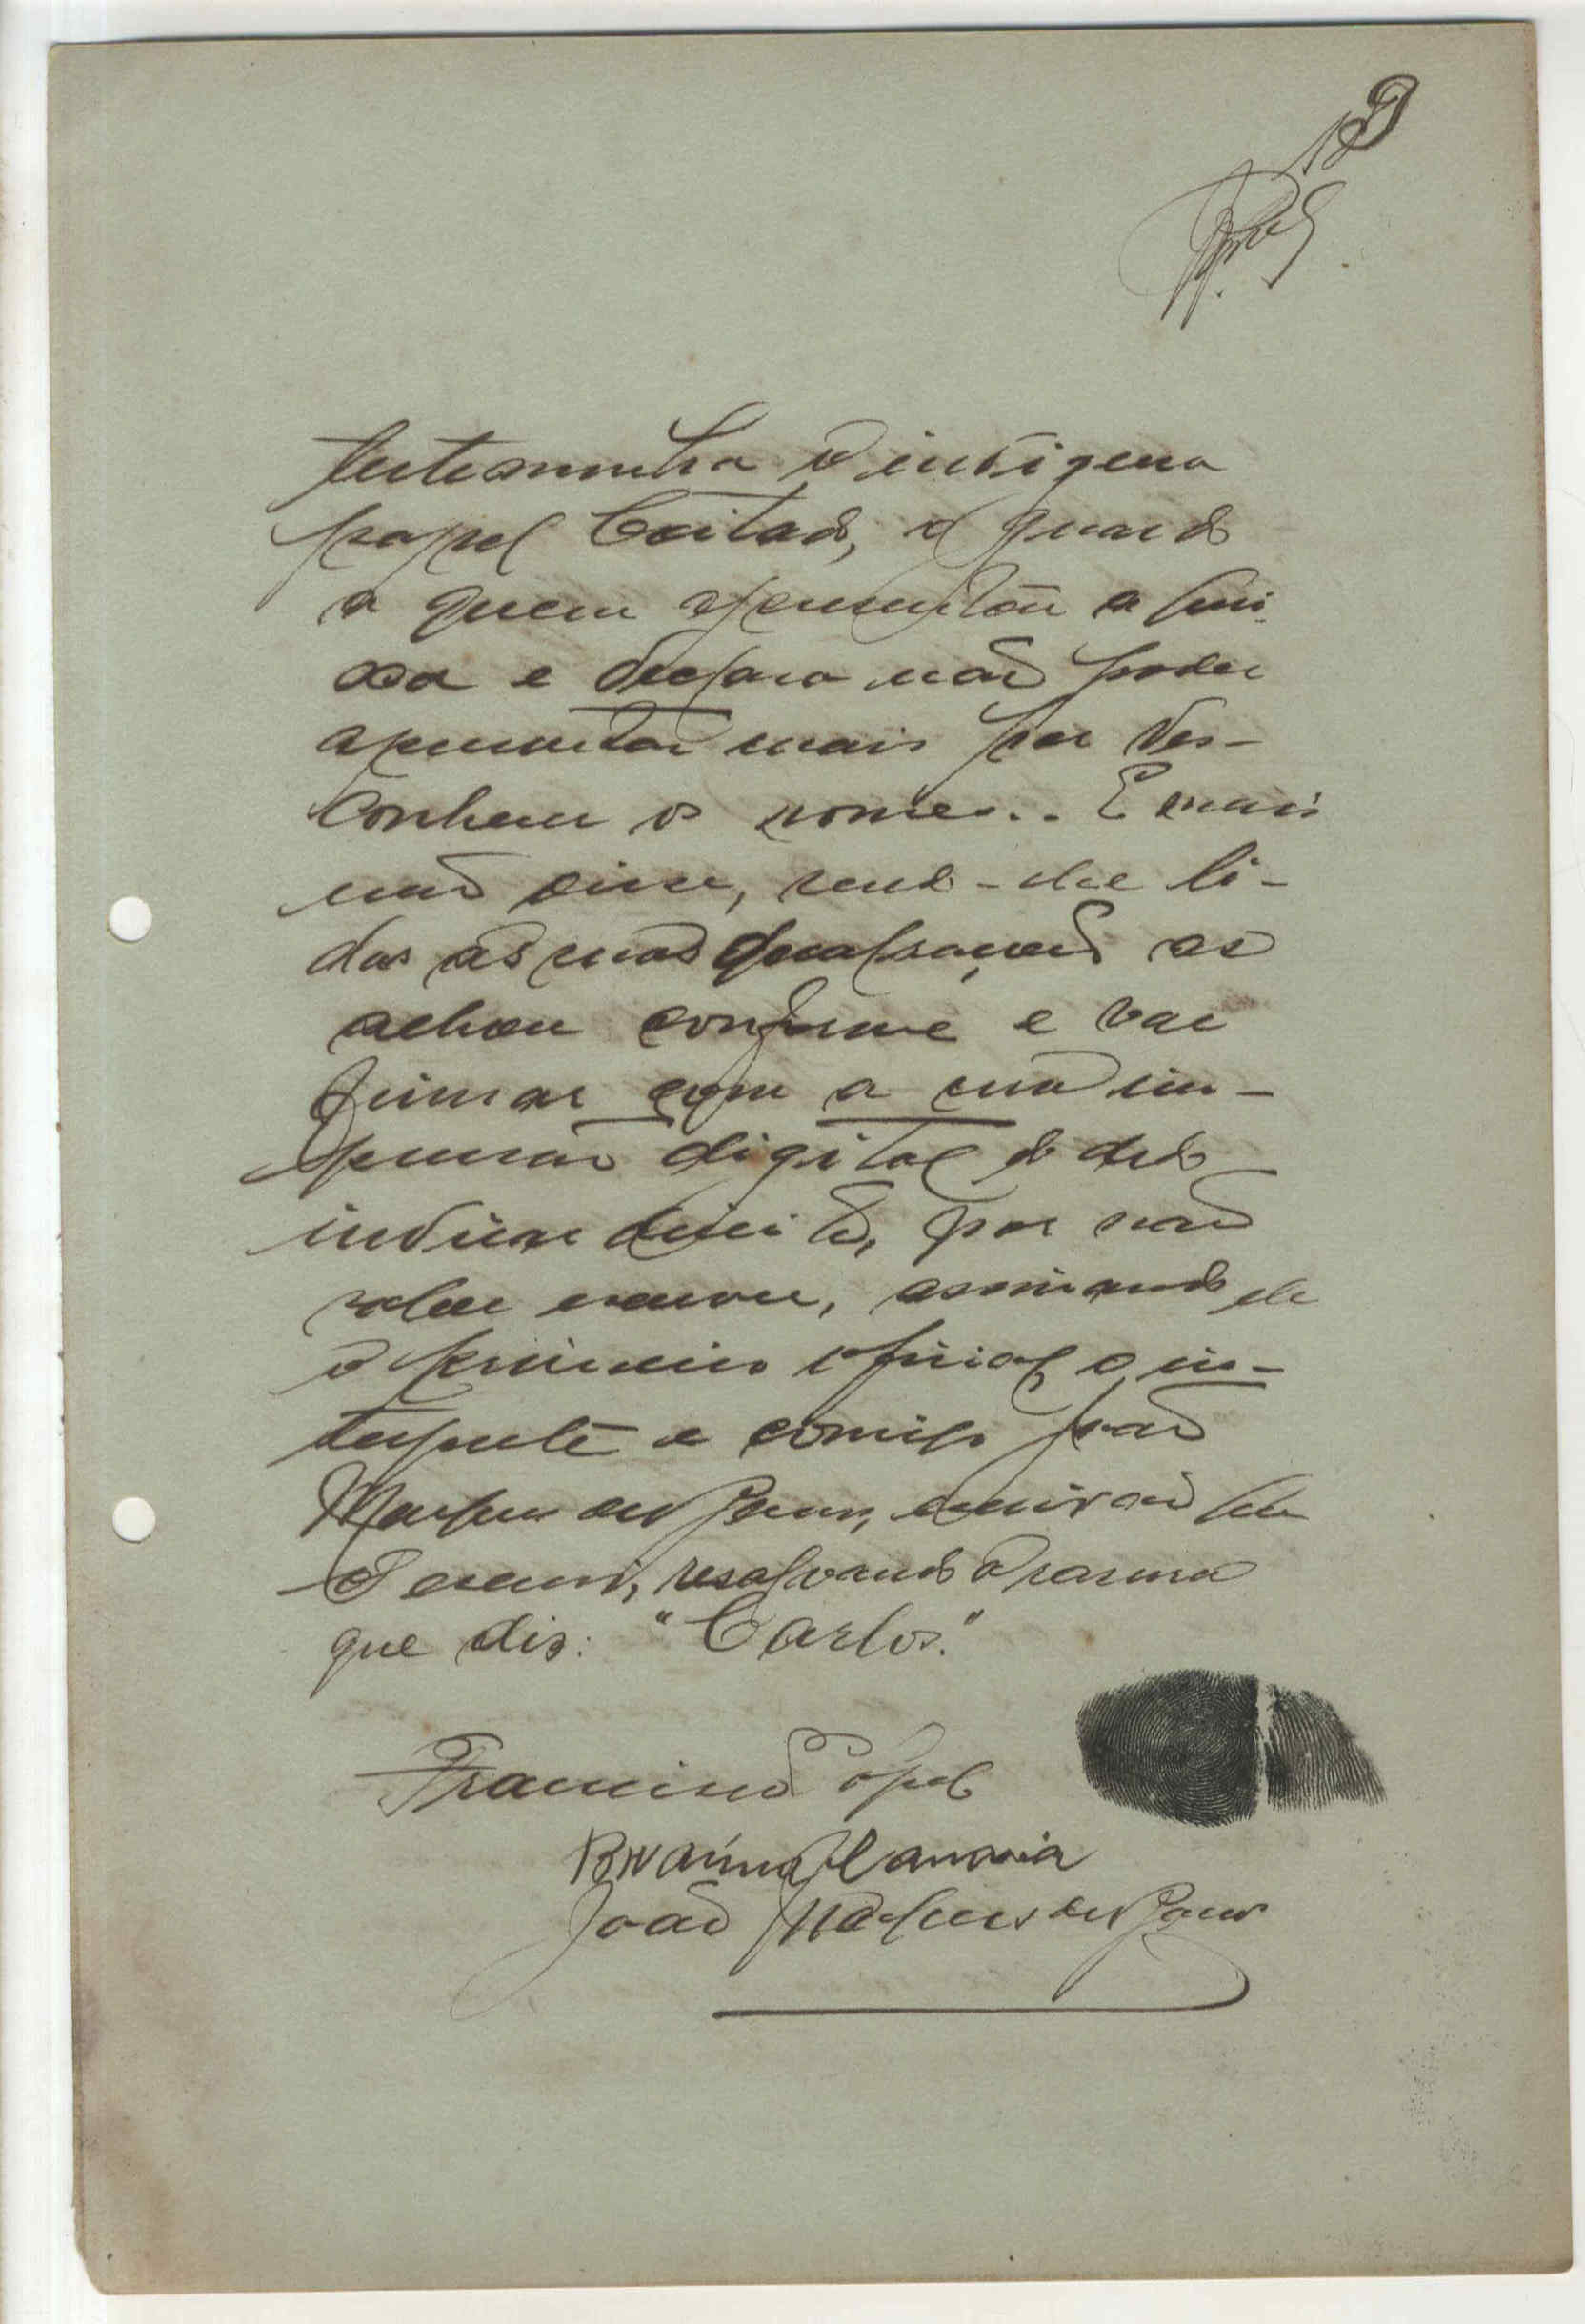 testemunha o indigena
papel Coitado, o guarda
a quem apresentou a quei
xa e declara não poder
apresentar mais por des-
conhecer os nomes.. E mais
não disse, sendo-lhe li-
das as suas declarações as
achou conforme e vae
firmar com a sua im-
pressão digital do dedo
indicador direito, por não
saber escrever, assinando ele
o primeiro oficial o in-
terprete e comigo João
Marques de, escrivão que
o escrevi, resalvando a rasura
que diz: "Carlos."
Francisco
João Marques de